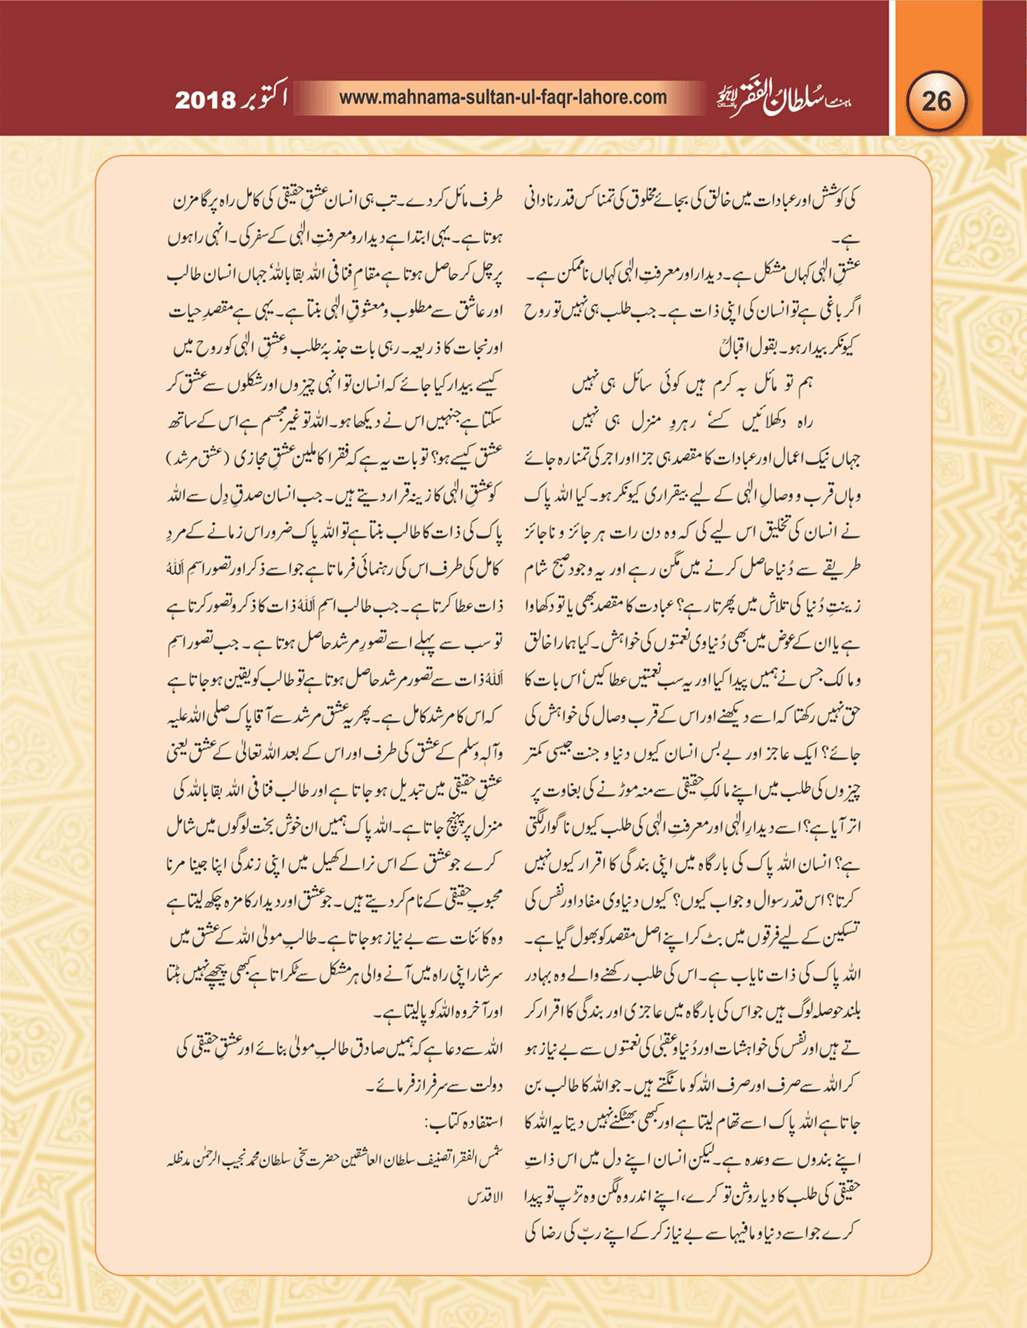 26
ماہنامہ سلطان الفقر لاہور
www.mahnama-sultan-ul-faqr-lahore.com
اکتوبر 2018
کی کوشش اور عبادات میں خالق کی بجائے مخلوق کی تمنا کس قدر نادانی
ہے۔
عشقِ الٰہی کہاں مشکل ہے۔ دیدار اور معرفتِ الٰہی کہاں ناممکن ہے۔
اگر باغی ہے تو انسان کی اپنی ذات ہے۔ جب طلب ہی نہیں تو روح
کیونکر بیدار ہو۔ بقول اقبالؒ
ہم تو مائل بہ کرم ہیں کوئی سائل ہی نہیں
راہ دکھلائیں کسے‘ رہروِ منزل ہی نہیں
جہاں نیک اعمال اور عبادات کا مقصد ہی جزا اور اجر کی تمنا رہ جائے
وہاں قرب و وصالِ الٰہی کے لیے بیقراری کیونکر ہو۔ کیا اللہ پاک
نے انسان کی تخلیق اس لیے کی کہ وہ دن رات ہر جائز و ناجائز
طریقے سے دُنیا حاصل کرنے میں مگن رہے اور یہ وجود صبح شام
زینتِ دُنیا کی تلاش میں پھرتا رہے؟ عبادت کا مقصد بھی یا تو دکھاوا
ہے یا ان کے عوض میں بھی دُنیاوی نعمتوں کی خواہش۔ کیا ہمارا خالق
و مالک جس نے ہمیں پیدا کیا اور یہ سب نعمتیں عطا کیں‘ اس بات کا
حق نہیں رکھتا کہ اسے دیکھنے اور اس کے قرب وصال کی خواہش کی
جائے؟ ایک عاجز اور بے بس انسان کیوں دنیا و جنت جیسی کمتر
چیزوں کی طلب میں اپنے مالکِ حقیقی سے منہ موڑنے کی بغاوت پر
اتر آیا ہے؟ اسے دیدارِ الٰہی اور معرفتِ الٰہی کی طلب کیوں ناگوار لگتی
ہے؟ انسان اللہ پاک کی بارگاہ میں اپنی بندگی کا اقرار کیوں نہیں
کرتا؟ اس قدر سوال و جواب کیوں؟ کیوں دنیاوی مفاد اور نفس کی
تسکین کے لیے فرقوں میں بٹ کر اپنے اصل مقصد کو بھول گیا ہے۔
اللہ پاک کی ذات نایاب ہے۔ اس کی طلب رکھنے والے وہ بہادر
بلند حوصلہ لوگ ہیں جو اس کی بارگاہ میں عاجزی اور بندگی کا اقرار کر
تے ہیں اور نفس کی خواہشات اور دُنیا و عقبیٰ کی نعمتوں سے بے نیاز ہو
کر اللہ سے صرف اور صرف اللہ کو مانگتے ہیں۔ جو اللہ کا طالب بن
جاتا ہے اللہ پاک اسے تھام لیتا ہے اور کبھی بھٹکنے نہیں دیتا یہ اللہ کا
اپنے بندوں سے وعدہ ہے۔ لیکن انسان اپنے دل میں اس ذاتِ
حقیقی کی طلب کا دیا روشن تو کرے، اپنے اندر وہ لگن وہ تڑپ تو پیدا
کرے جو اسے دنیا و مافیہا سے بے نیاز کر کے اپنے ربّ کی رضا کی
طرف مائل کر دے۔ تب ہی انسان عشقِ حقیقی کی کامل راہ پر گامزن
ہوتا ہے۔ یہی ابتدا ہے دیدار و معرفتِ الٰہی کے سفر کی۔ انہی راہوں
پر چل کر حاصل ہوتا ہے مقامِ فنا فی اللہ بقا باللہ‘ جہاں انسان طالب
اور عاشق سے مطلوب و معشوقِ الٰہی بنتا ہے۔ یہی ہے مقصدِ حیات
اور نجات کا ذریعہ۔ رہی بات جذبۂ طلب و عشقِ الٰہی کو روح میں
کیسے بیدار کیا جائے کہ انسان تو انہی چیزوں اور شکلوں سے عشق کر
سکتا ہے جنہیں اس نے دیکھا ہو۔ اللہ تو غیر مجسم ہے اس کے ساتھ
عشق کیسے ہو؟ تو بات یہ ہے کہ فقرا کاملین عشقِ مجازی (عشقِ مرشد)
کو عشقِ الٰہی کا زینہ قرار دیتے ہیں۔ جب انسان صدقِ دِل سے اللہ
پاک کی ذات کا طالب بنتا ہے تو اللہ پاک ضرور اس زمانے کے مردِ
کامل کی طرف اس کی رہنمائی فرماتا ہے جو اسے ذکر اور تصور اسمِ اللہ
ذات عطا کرتا ہے۔ جب طالب اسمِ اللہ ذات کا ذکر و تصور کرتا ہے
تو سب سے پہلے اسے تصورِ مرشد حاصل ہوتا ہے۔ جب تصور اسمِ
اللہ ذات سے تصور مرشد حاصل ہوتا ہے تو طالب کو یقین ہو جاتا ہے
کہ اس کا مرشد کامل ہے۔ پھر یہ عشقِ مرشد سے آقا پاک صلی اللہ علیہ
وآلہٖ وسلم کے عشق کی طرف اور اس کے بعد اللہ تعالیٰ کے عشق یعنی
عشقِ حقیقی میں تبدیل ہو جاتا ہے اور طالب فنا فی اللہ بقا باللہ کی
منزل پر پہنچ جاتا ہے۔ اللہ پاک ہمیں ان خوش بخت لوگوں میں شامل
کرے جو عشق کے اس نرالے کھیل میں اپنی زندگی اپنا جینا مرنا
محبوبِ حقیقی کے نام کر دیتے ہیں۔ جو عشق اور دیدار کا مزہ چکھ لیتا ہے
وہ کائنات سے بے نیاز ہو جاتا ہے۔ طالبِ مولیٰ اللہ کے عشق میں
سرشار اپنی راہ میں آنے والی ہر مشکل سے ٹکراتا ہے کبھی پیچھے نہیں ہٹتا
اور آخر وہ اللہ کو پا لیتا ہے۔
اللہ سے دعا ہے کہ ہمیں صادق طالبِ مولیٰ بنائے اور عشقِ حقیقی کی
دولت سے سرفراز فرمائے۔
استفادہ کتاب:
شمس الفقرا تصنیف سلطان العاشقین حضرت سخی سلطان محمد نجیب الرحمٰن مدظلہ
الاقدس